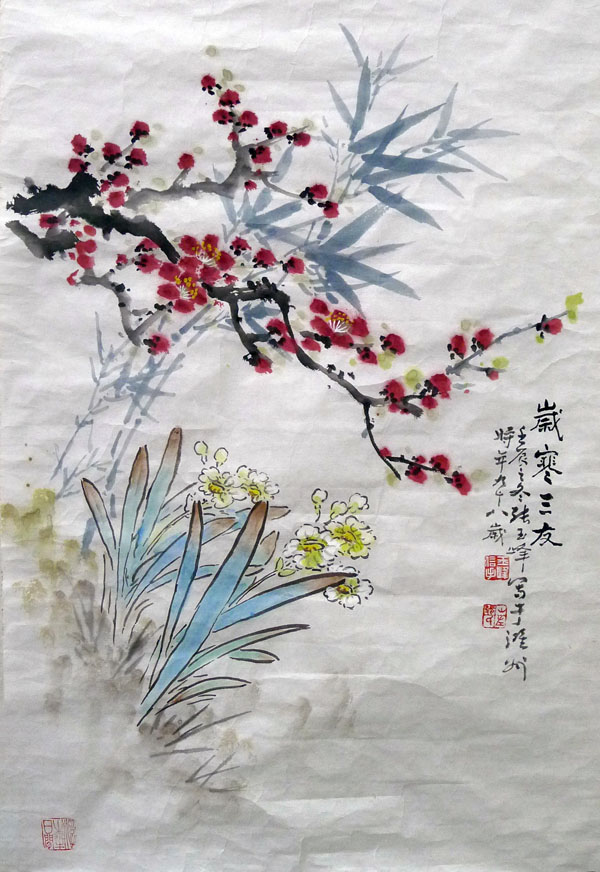 歲寒三友
壬辰之冬張玉峰写于漳州
時年九十八歲